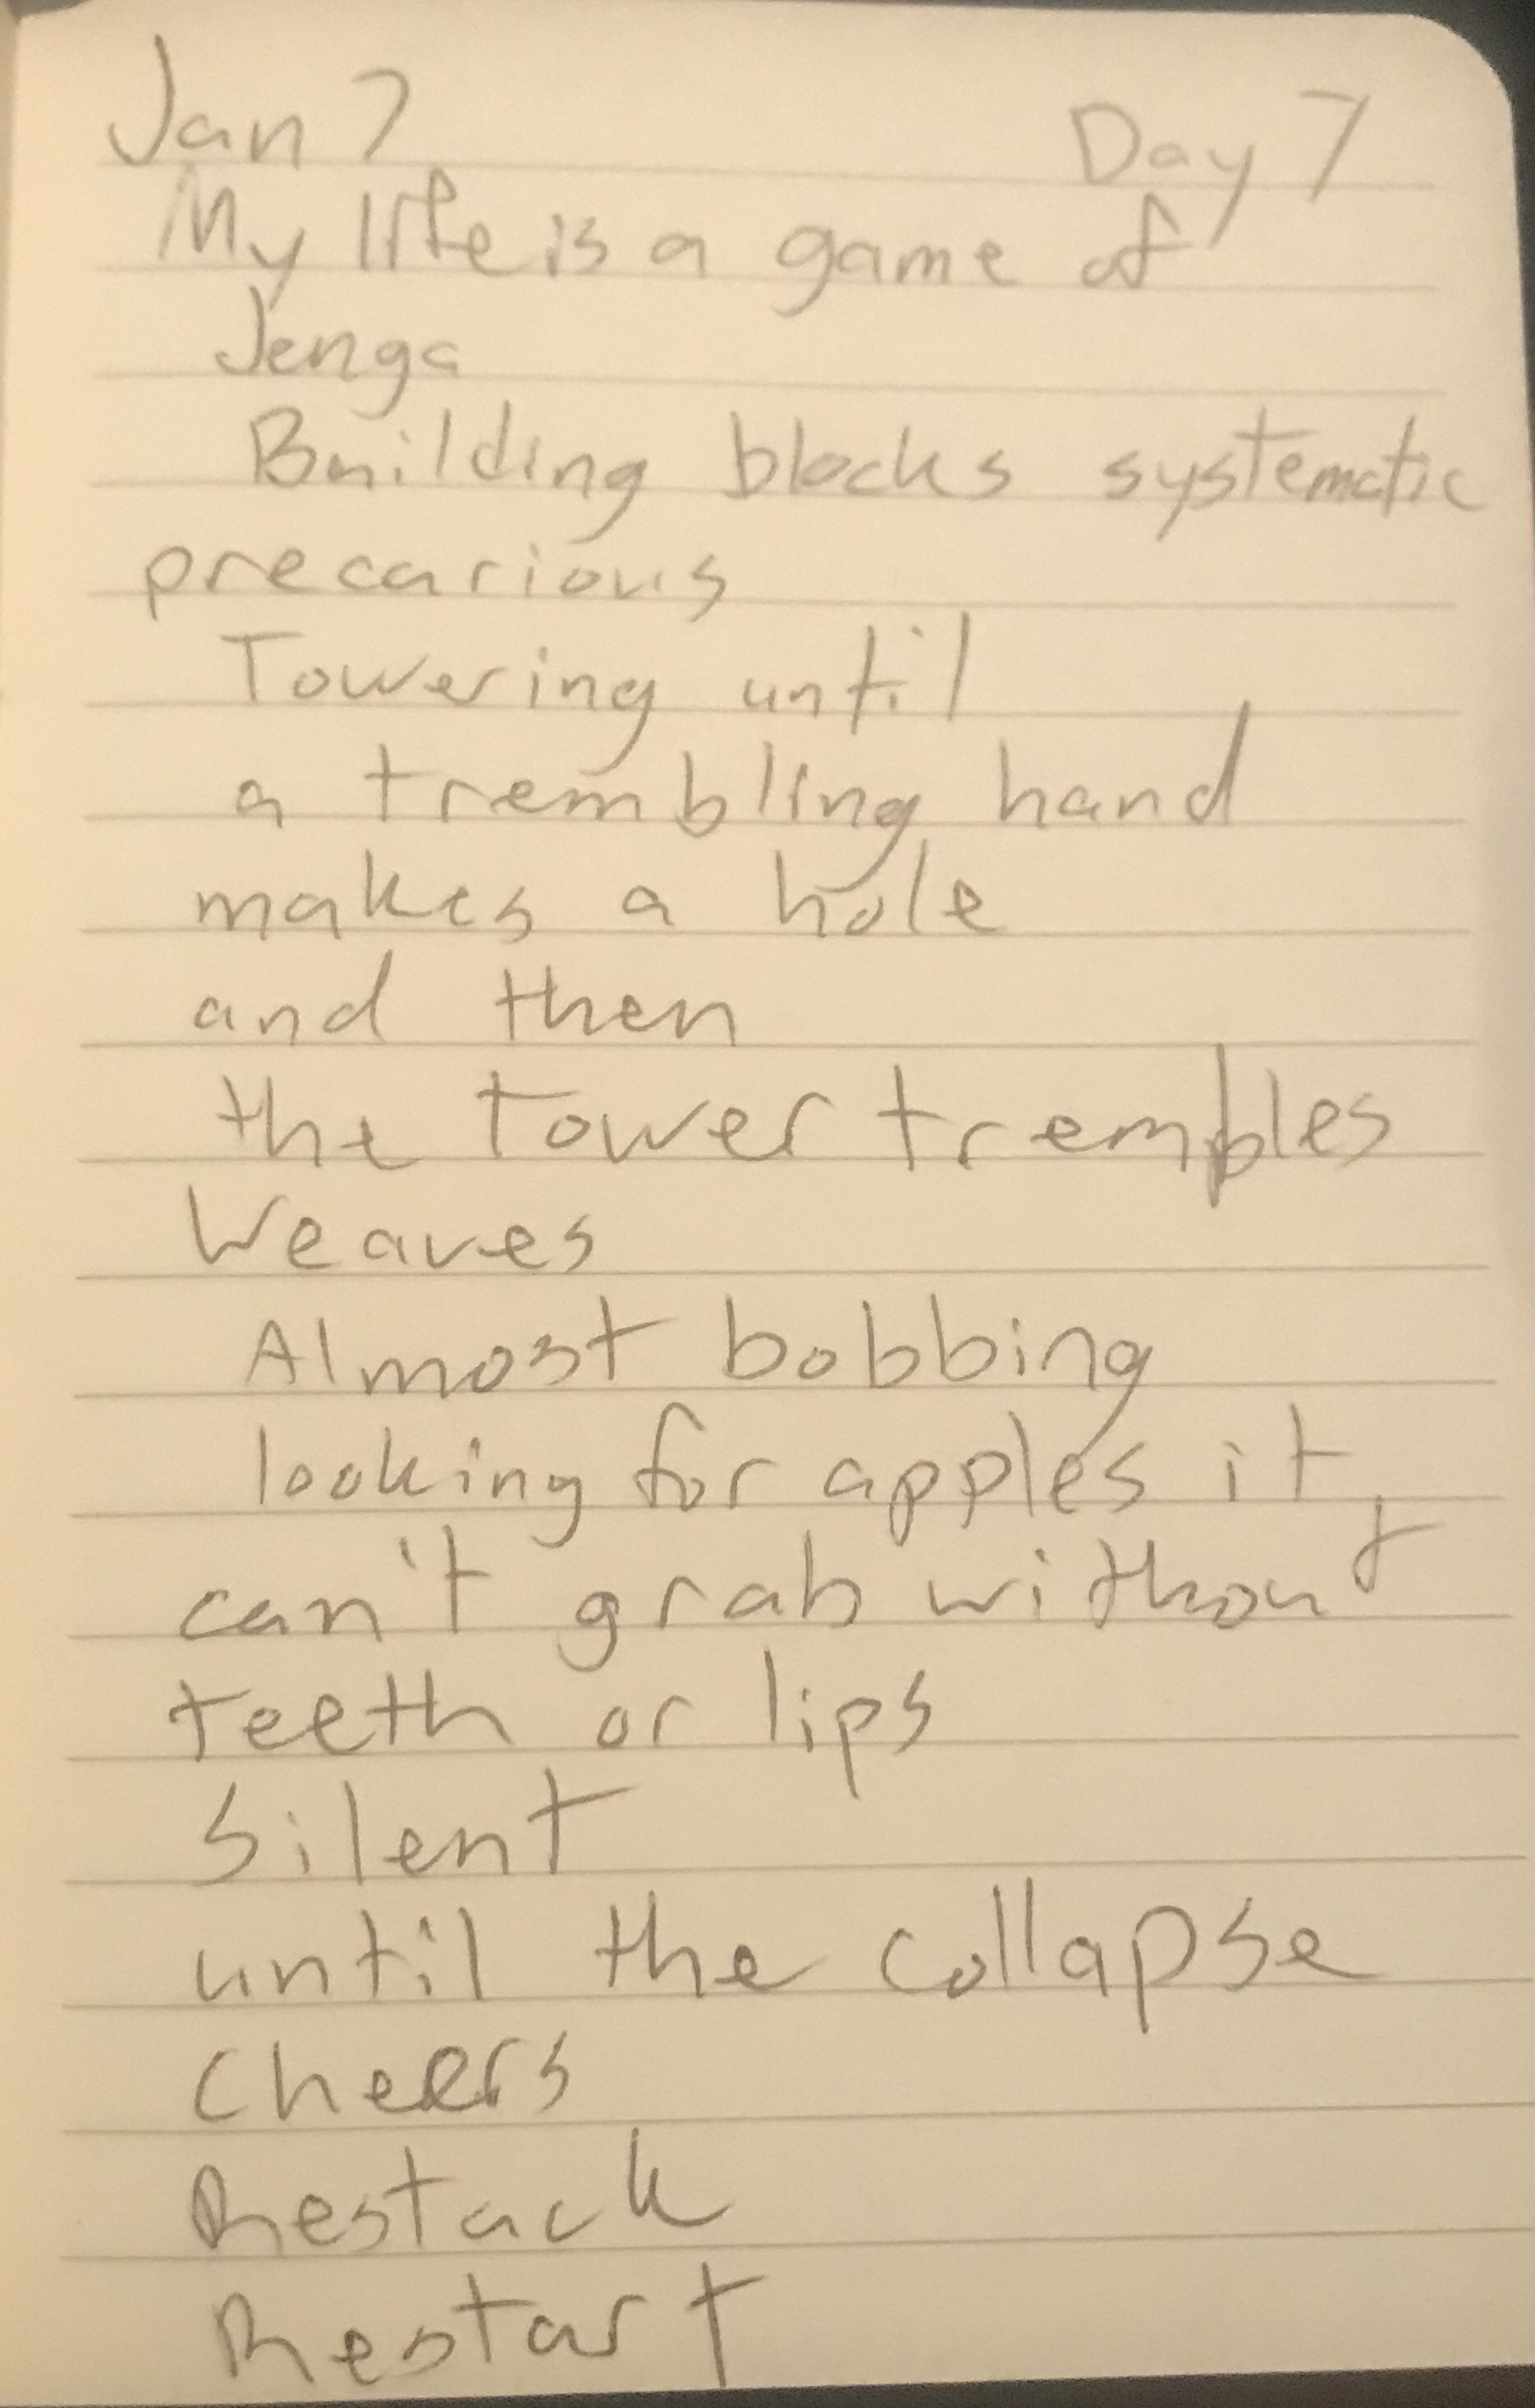 Jan 7 Day 7
My life is a game of
Jenga
Building blocks systematic
precarious
Towering until
a trembling hand
makes a hole
and then
the tower trembles
Weaves
Almost bobbing
looking for apples it
can't grab without
teeth or lips
Silent
until the collapse
Cheers
Restack
Restart